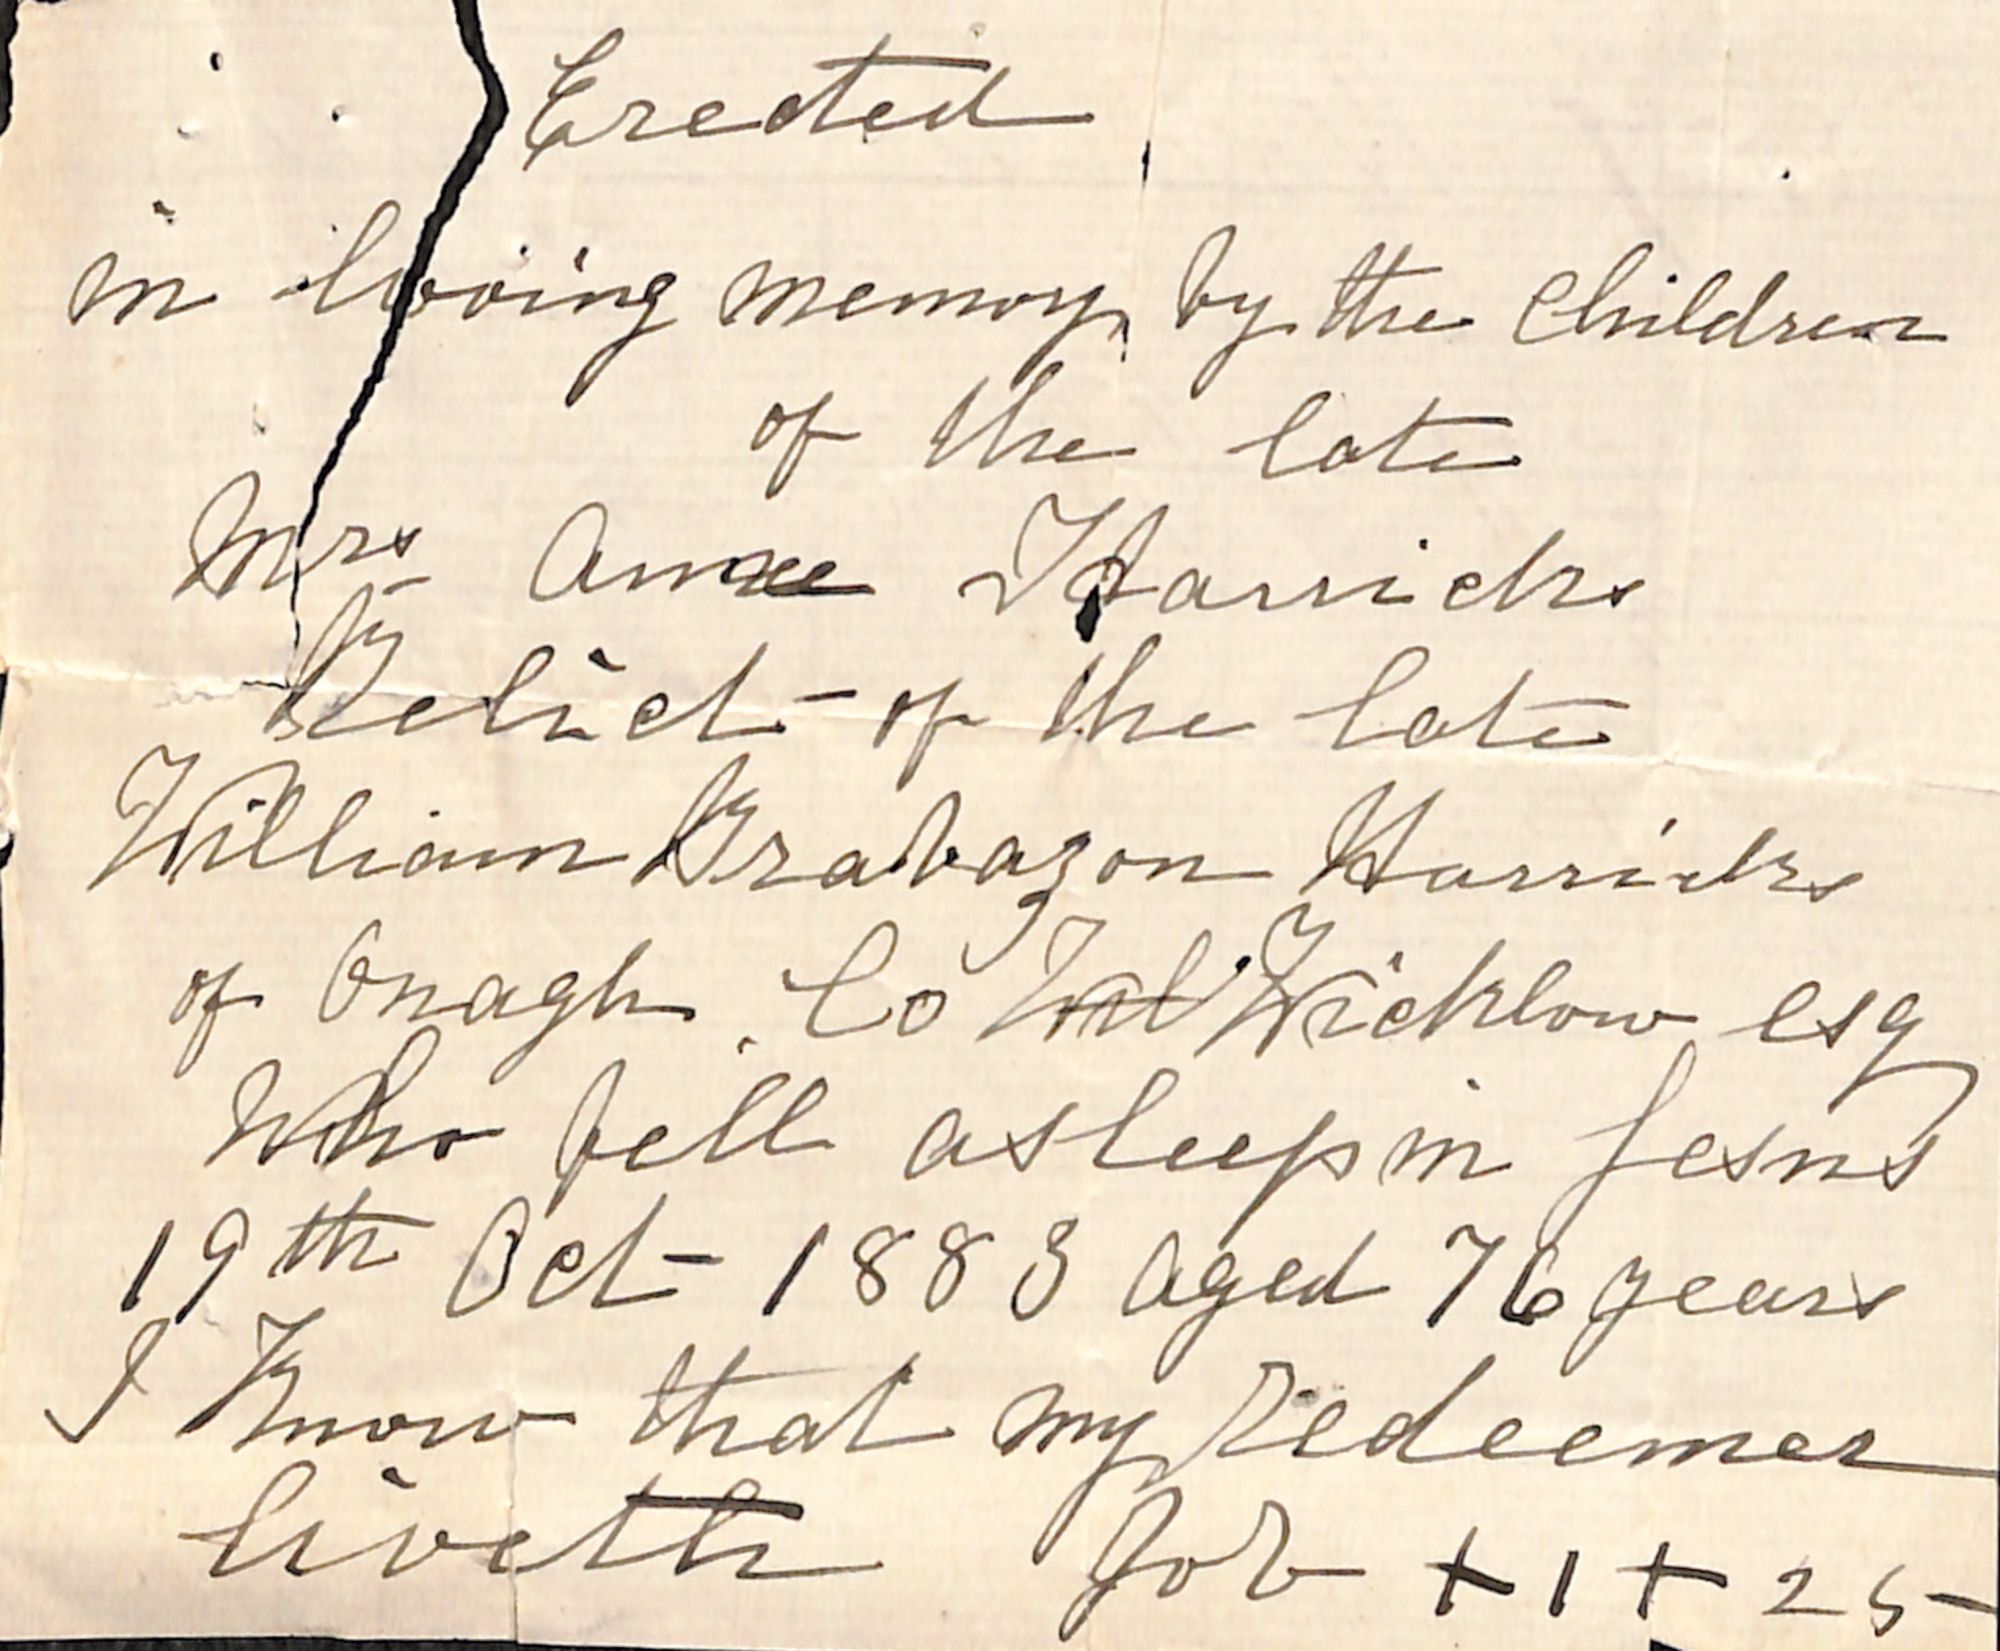 Erected
in loving memory by the Children
of the late
Mrs Anne Harricks
Relict of the late
William Brabazon Harricks
of Onagh Co Wicklow esq
Who fell asleep in Jesus
19th Oct 1883 aged 76 years
I Know that my Redeemer
liveth Job + 1 + 25